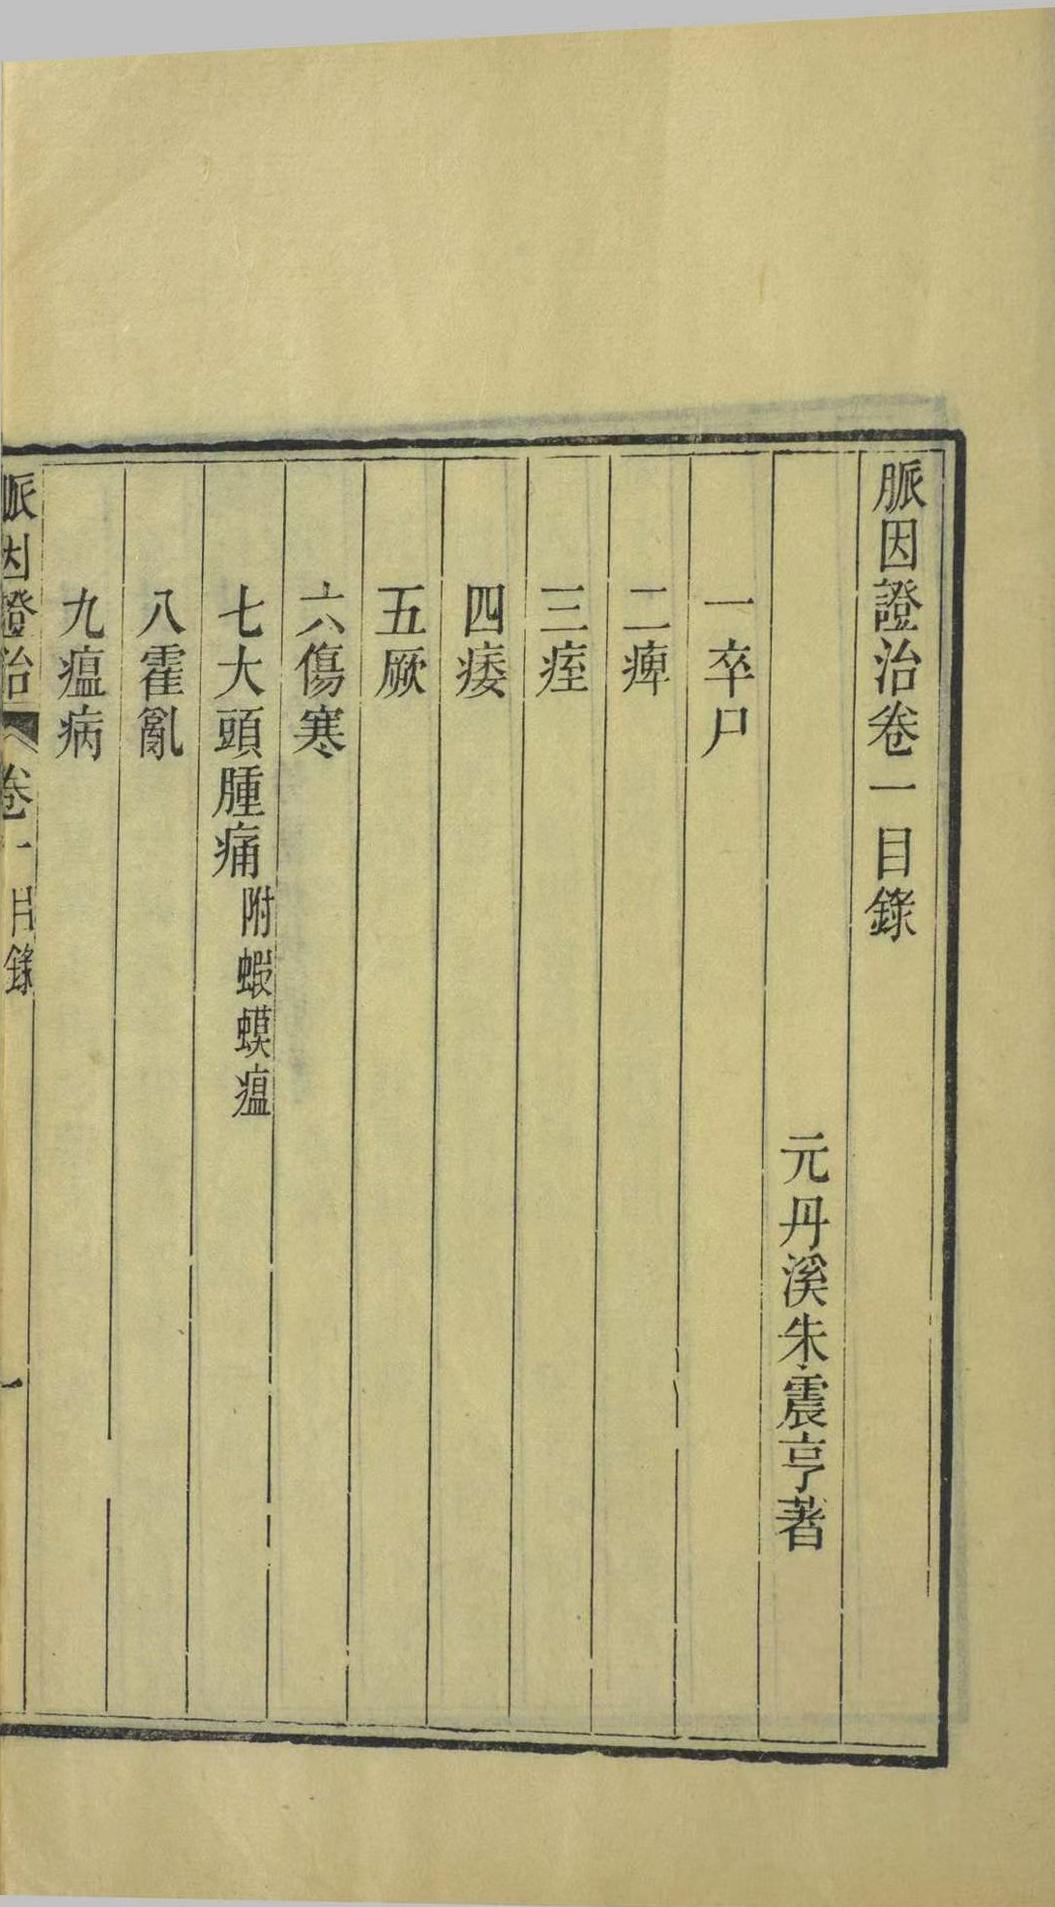 脈因證治卷一目錄
元丹溪朱震亨著
一卒尸
二痺
三痓
四痿
五厥
六傷寒
七大頭腫痛附蝦蟆瘟
八霍亂
九瘟病
脈因證治卷一目錄 一